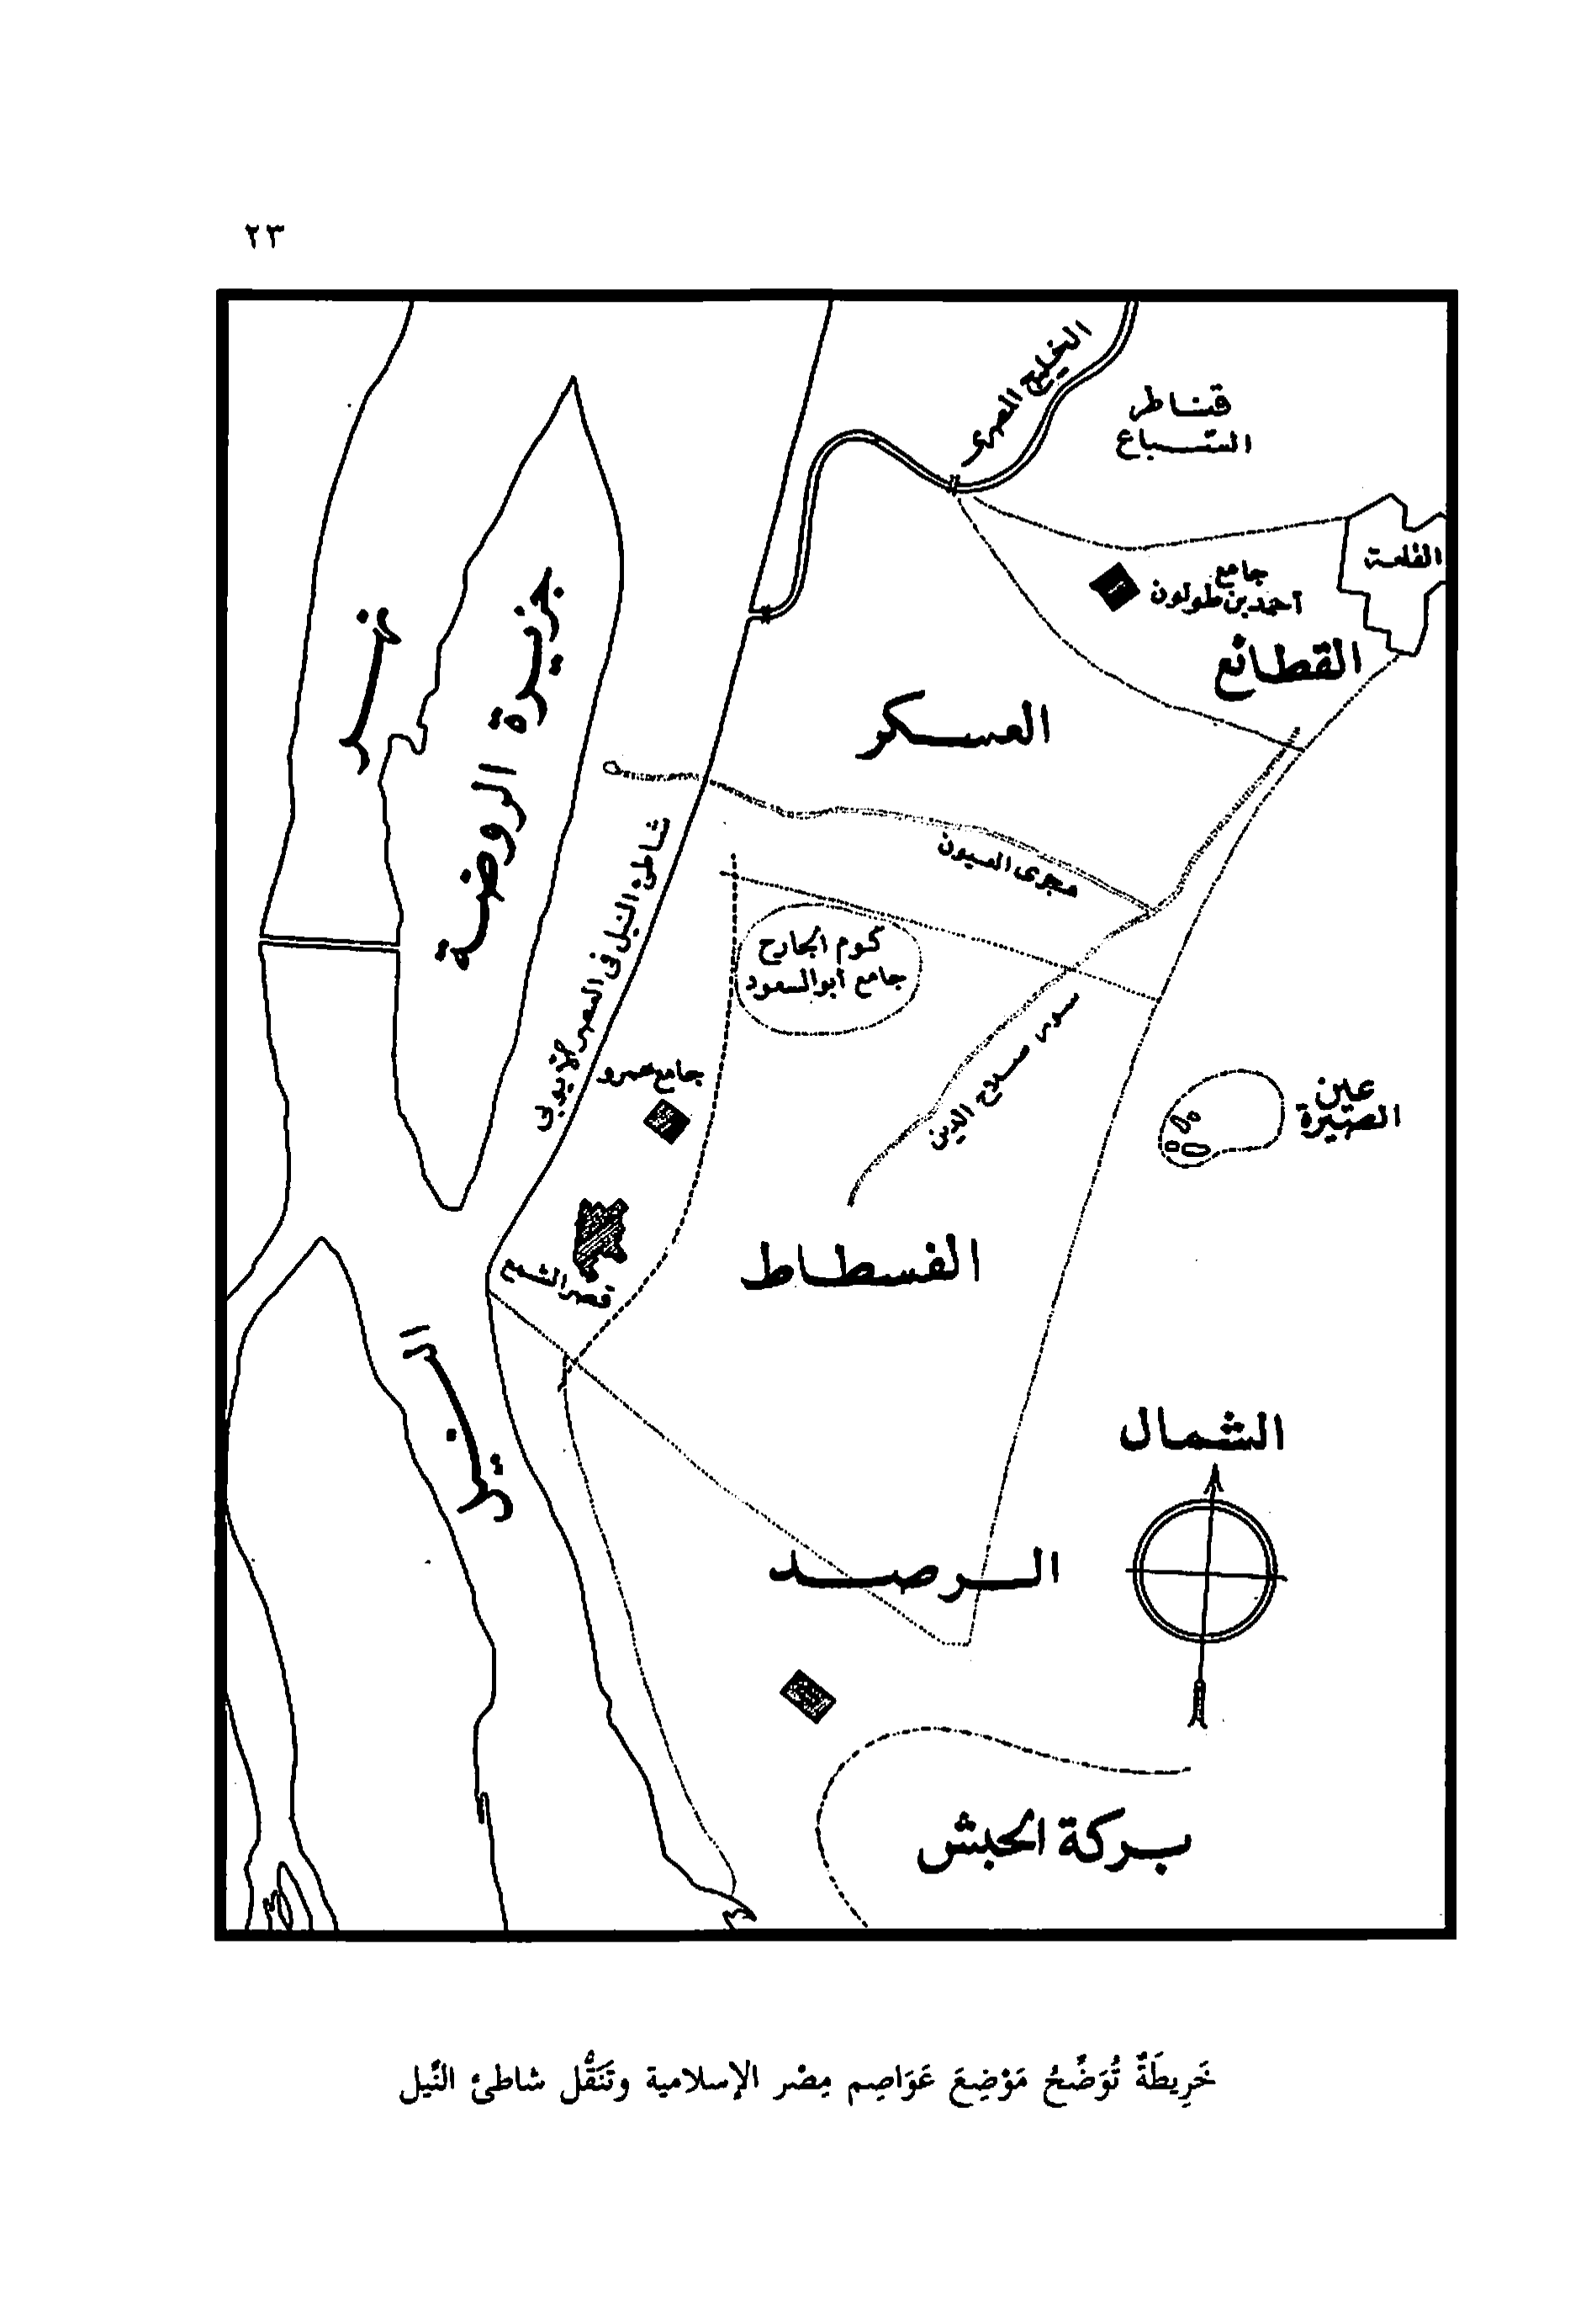 ٢٣
الخليج المصرى
قناطر
السباع
القلعة
جامع
أحمد بن طولون
القطائع
العسكر
نهر
جزيرة الروضة
مجرى العيون
شاطئ النيل فى العصر الأيوبى
كوم الجارح
جامع أبو السعود
سور صلاح الدين
جامع عمرو
عين
الصيرة
قصر الشمع
الفسطاط
النيل
الشمال
الرصد
بركة الحبش
خَرِيطَةٌ تُوَضِّحُ مَوْضِعَ عَوَاصِم مِصْر الإسلامية وتَنَقُّل شاطئ النِّيل